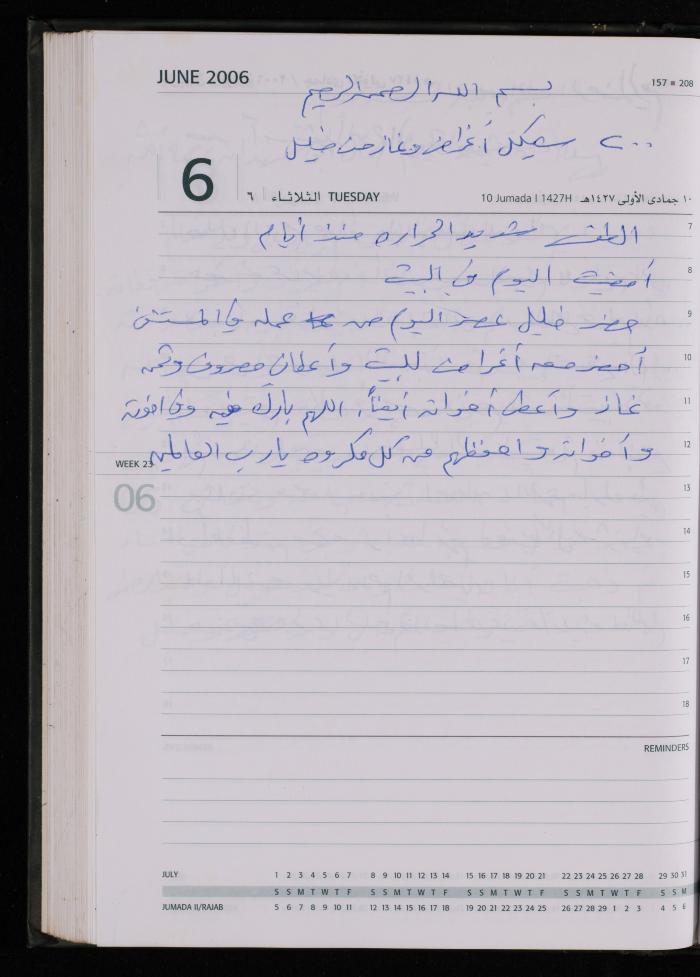 JUNE 2006
157 ■ 208
بسم الله الرحمن الرحيم
٢٠٠ شيكل أغراض وغاز من خليل
6
٦ الثلاثاء TUESDAY
10 Jumada I 1427H ١٠ جمادى الأولى ١٤٢٧هـ
7 الطقس شديد الحراره منذ أيام
8 أمضيت اليوم في البيت
9 حضر خليل عصر اليوم من عمله في المستشفى
10 أحضر معه أغراض للبيت وأعطاني مصروف وثمن
11 غاز وأعطى أخواته أيضاً، اللهم بارك فيه وفي اخوته
12 وأخواته واحفظهم من كل مكروه يا رب العالمين
WEEK 23
06
13
14
15
16
17
18
REMINDERS
JULY 1 2 3 4 5 6 7 8 9 10 11 12 13 14 15 16 17 18 19 20 21 22 23 24 25 26 27 28 29 30 31
S S M T W T F S S M T W T F S S M T W T F S S M T W T F S S M
JUMADA II/RAJAB 5 6 7 8 9 10 11 12 13 14 15 16 17 18 19 20 21 22 23 24 25 26 27 28 29 1 2 3 4 5 6